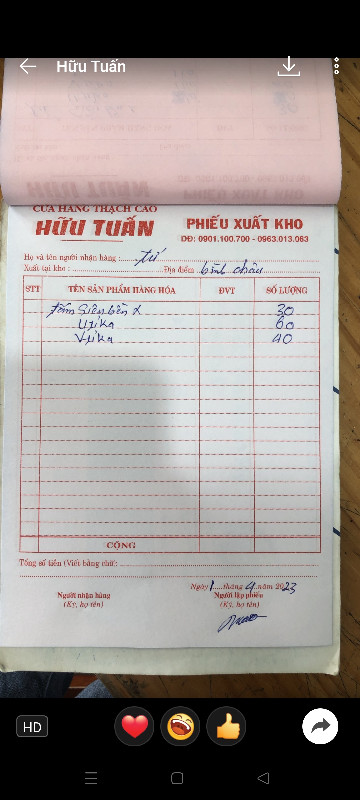 Hữu Tuấn
CỬA HÀNG THẠCH CAO
HỮU TUẤN
PHIẾU XUẤT KHO
DĐ: 0901.100.700 - 0963.013.063
Họ và tên người nhận hàng : tú
Xuất tại kho : Địa điểm bình châu
STT TÊN SẢN PHẨM HÀNG HÓA ĐVT SỐ LƯỢNG
tấm Siêu bền X 30
U 60
V 40
CỘNG
Tổng số tiền (Viết bằng chữ):
Ngày 1 tháng 9 năm 2023
Người nhận hàng Người lập phiếu
(Ký, họ tên) (Ký, họ tên)
HD